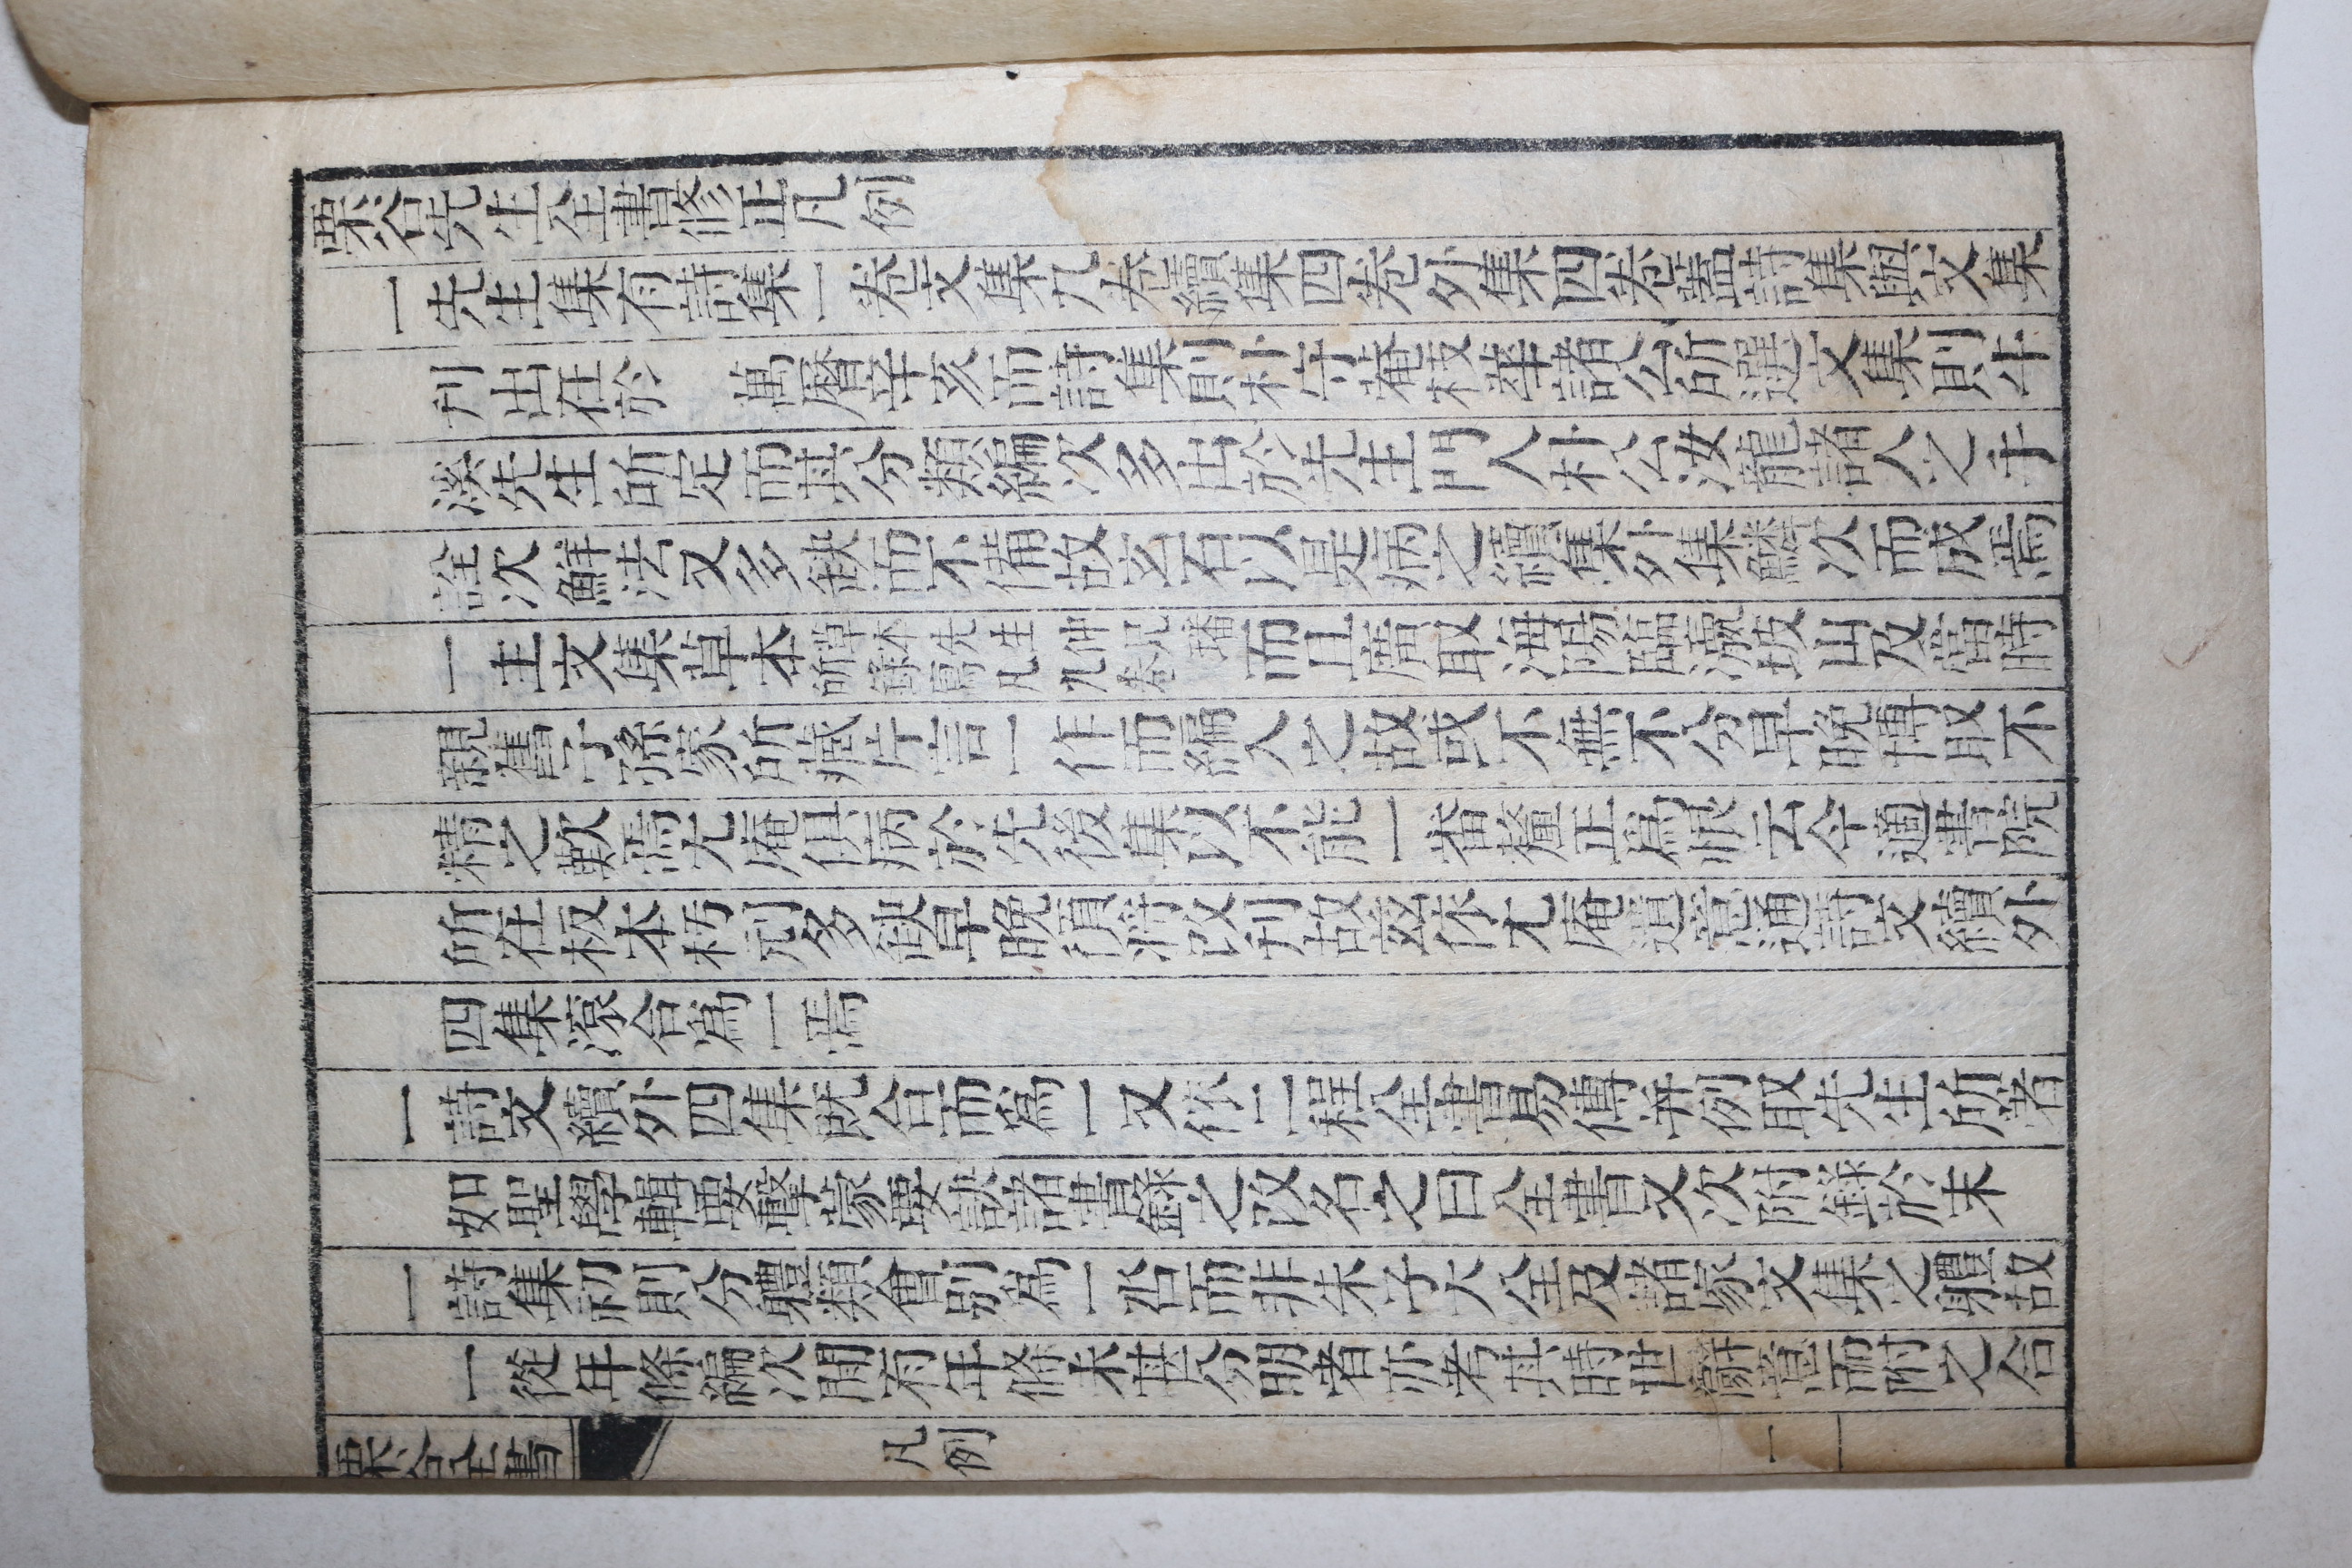 栗谷先生全書修正凡例
一先生集有詩集一卷文集九卷續集四卷外集四卷蓋詩集與文集
刊出在於 萬曆辛亥而詩集則朴守庵枝華諸公所選文集則牛
溪先生所定而其分類編次多出於先生門人朴公汝龍諸人之手
詮次鮮法又多缺而不備故玄石以是病之續集外集鱗次而成焉
一主文集草本草本先生仲兄璠所錄寫凡九卷而且廣取海陽臨瀛坡山及當時
親舊子孫家所藏片言一作而編入之故或不無不分早晚博取不
精之歎焉尤庵俱病於先後集以不能一番釐正爲恨云今適書院
所在板本朽刓多缺早晚須將改刊故玆依尤庵遺意通詩文續外
四集滾合爲一焉
一詩文續外四集旣合而爲一又依二程全書易傳幷例取先生所著
如聖學輯要擊蒙要訣諸書錄之改名之曰全書又次附錄於末
一詩集初則分體類會別爲一咎而非朱子大全及諸家文集之體故
一從年條編次間有年條未甚分明者亦考其時世辭意而附之合
栗谷全書
凡例
一